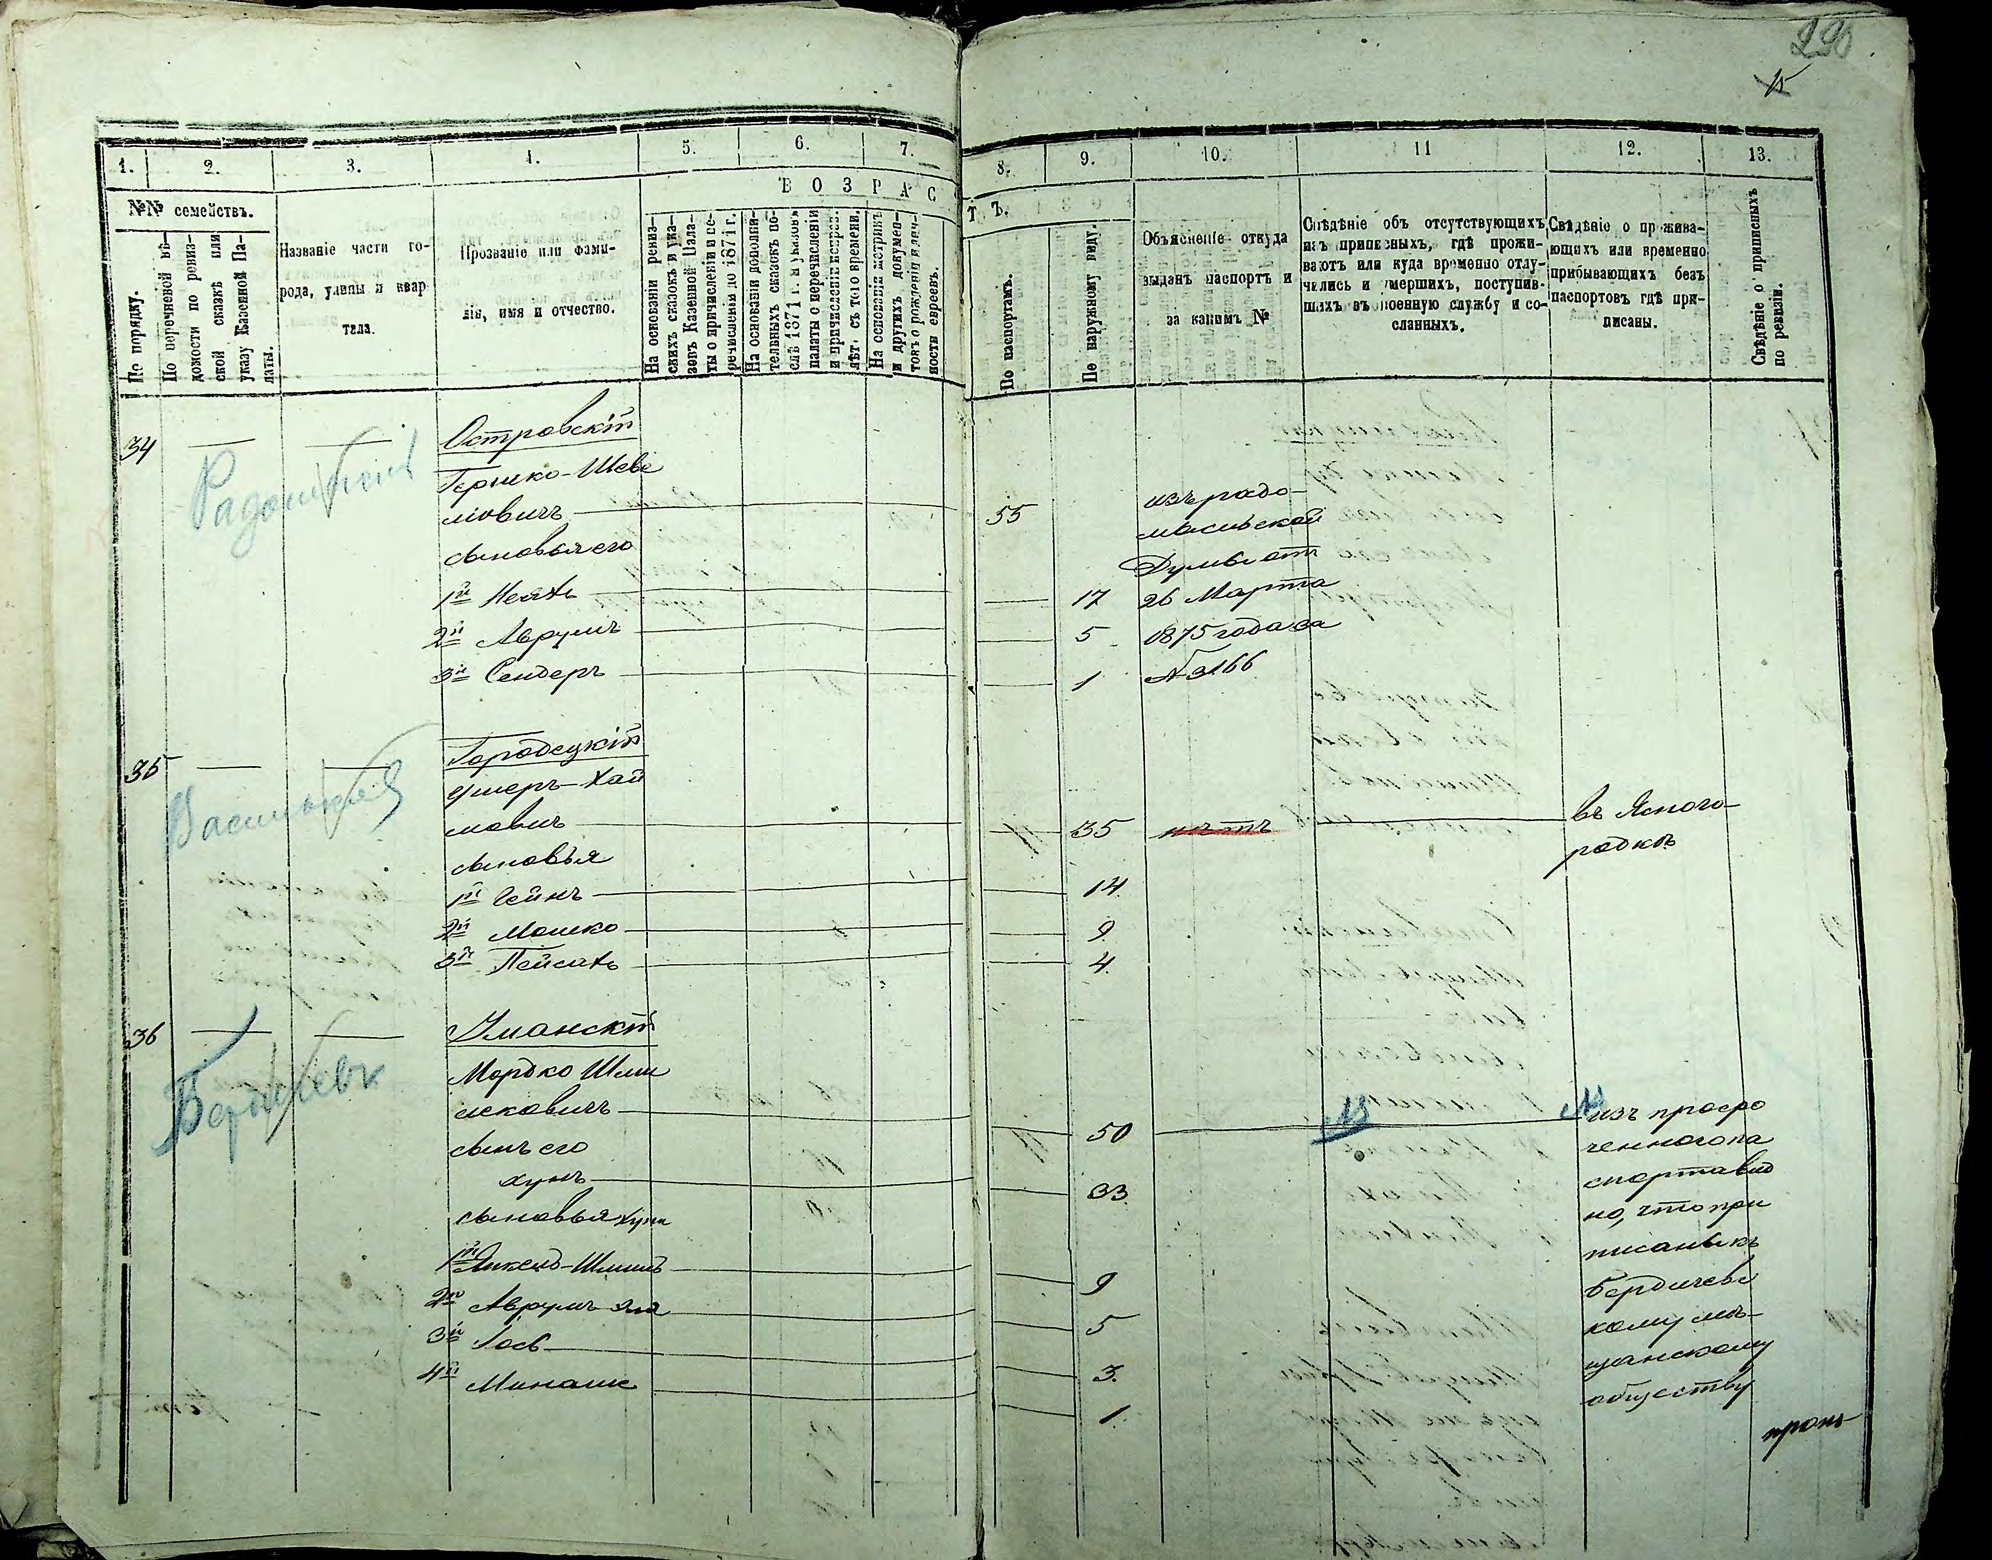 290
15
1.
2.
3.
4.
5.
6.
7.
8.
9.
10.
11
12.
13.
ВОЗРАС
Тъ.
№№ семействъ.
По порядку.
По перечневой вѣ-
домости по ревиз-
ской сказкѣ или
указу Казенной Па-
латы.
Названіе части го-
рода, улицы и квар
тала.
Прозваніе или фами-
лія, имя и отчество.
На основаніи ревиз-
скихъ сказокъ и ука-
зовъ Казенной Пала-
ты о причисленіи и пе-
речисленіи до 1871 г.
На основаніи дополни-
тельныхъ сказокъ по-
слѣ 1871 г. и указовъ
палаты о перечисленіи
и причисленіи непроп.
лѣт. съ того времени.
На основаніи метрикъ
и другихъ докумен-
товъ о рожденіи и лич-
ности евреевъ.
По паспортамъ.
По наружному виду.
Объясненіе откуда
выданъ паспортъ и
за какимъ №
Свѣдѣніе объ отсутствующихъ
изъ приписныхъ, гдѣ прожи-
ваютъ или куда временно отлу-
чились и умершихъ, поступив-
шихъ въ военную службу и со-
сланныхъ.
Свѣдѣніе о прожива-
ющихъ или временно
прибывающихъ безъ
паспортовъ гдѣ при-
писаны.
Свѣдѣніе о приписныхъ
по ревизіи.
34
Островскій
Гершко-Шеве
лювичъ 55
сыновья его
1й 17
2й Аврумъ 5
3й Сендеръ 1
изъ радо-
мысльской
Думы от
26 Марта
1875 года за
№ 3166
35
Городецкій
Ушеръ-Хаи
мовичъ 35 нѣтъ
сыновья
1й 14
2й Мошко 9
3й Пейсахъ 4
въ Ясного-
родкѣ
36
Бердичевъ
Уманскій
Мордко Шми
лековичъ 50
сынъ его
хунъ 33
сыновья хуна
1й 9
2й Аврумъ 5
3й Іось 3.
4й Минаше 1
изъ просро
ченного па
спорта вид
но, что при
писаны къ
Бердичевс
кому мѣ-
щанскому
обществу